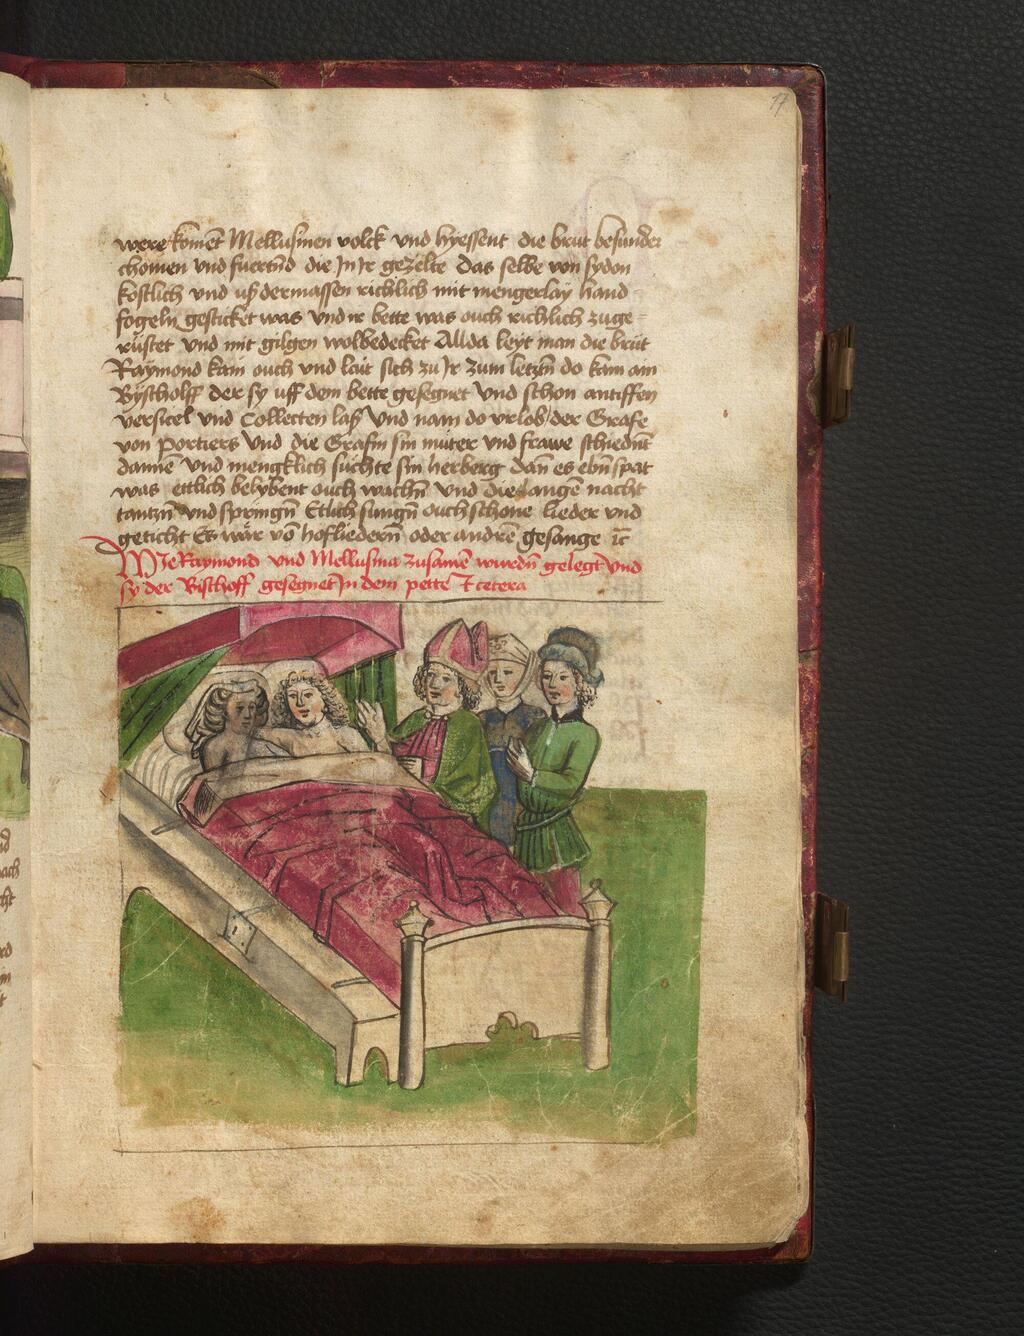 17
were komēt Mellusinen volck vnd hyessent die brut besunder
chomen vnd fuertnd die Jn Jr gezelte das selbe von sydon
kostlich vnd uß dermassen richlich mit mengerlay hand
fogeln gesticket was vnd ir bette was ouch richlich zuge=
rüstet vnd mit gilgen wolbedecket Allda leyt man die brüt
Raymond kam ouch vnd lait sich zu Jr zum letzñ do kam ain
Byscholff der sy uff dem bette gesegnet vnd schon antiffen
versicel vnd Collecten laß vnd nam do vrlob der Grafe
von portiers vnd die Grafin sin můter vnd frawe schiednt
dannē vnd mengklich sůchte sin herberg dañ es ebñ spat
was ettlich belybent ouch wachñ vnd die langē nacht
tantzñ vnd springñ Etlich sungñ ouch schone lieder vnd
geticht Es wär võ hofliedern oder andrē gesange ꝛc
WIe Raymond vnd Mellusina zusamē wurdñ gelegt vnd
sy der Bischoff gesegnet Jn dem pette Et cetera